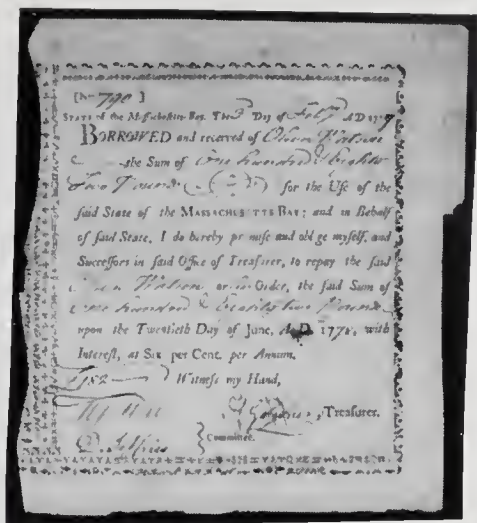 [No 790 ]
STATE of the Massachusetts-Bay. The Day of AD 177
BORROWED and received of Watson
the Sum of One hundred & Eighty
Two Pounds for the Use of the
said State of the MASSACHUSETTS BAY; and in Behalf
of said State, I do hereby pr mise and obl ge myself, and
Successors in said Office of Treasurer, to repay the said
Watson or Order, the said Sum of
One hundred & Eighty two Pounds
upon the Twentieth Day of June, A.D. 1778, with
Interest, at Six per Cent. per Annum.
£182 Witness my Hand,
, Treasurer.
Committee.